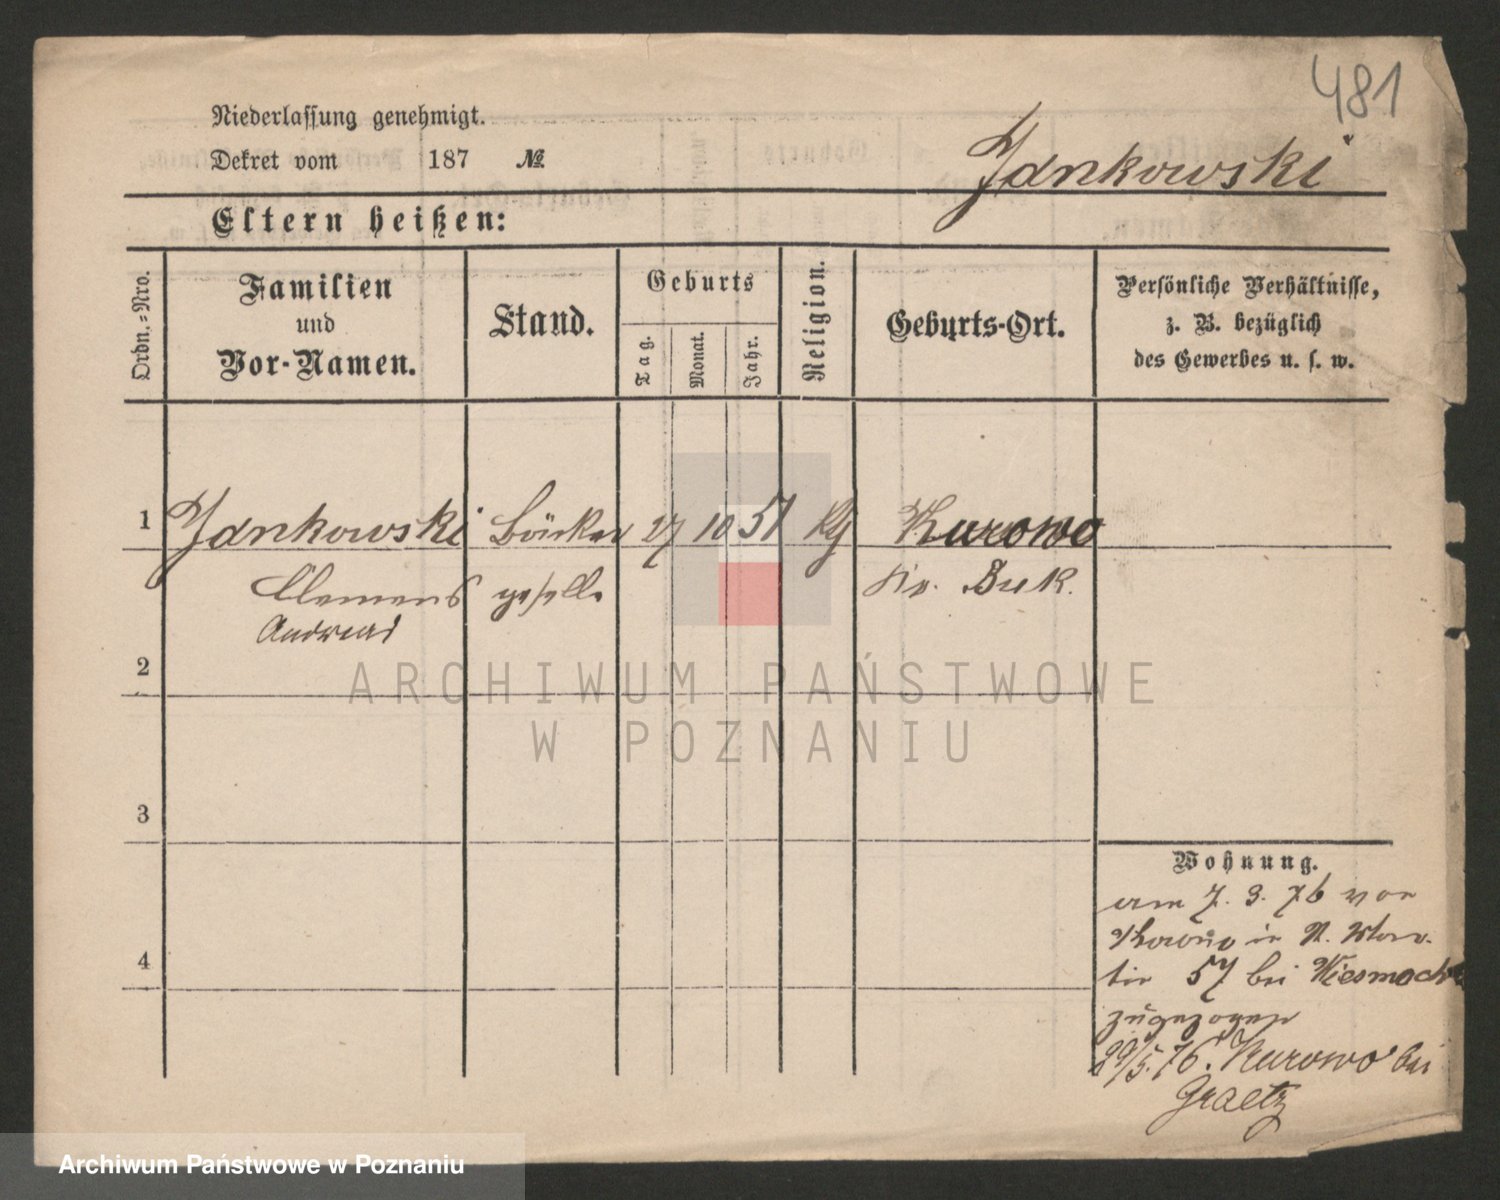 481
Niederlassung genehmigt.
Dekret vom 187 №
Jankowski
Eltern heißen:
Ordn.-Nro.
Familien
und
Vor-Namen.
Stand.
Geburts
Tag.
Monat.
Jahr.
Religion.
Geburts-Ort.
Persönliche Verhältnisse,
z. B. bezüglich
des Gewerbes u. s. w.
1 Jankowski Bäcker 27 10 57 Kurowo
Clemens geselle Kr. Buk.
Andreas
2
ARCHIWUM PAŃSTWOWE
W POZNANIU
3
Wohnung.
am 7. 3. 76 von
in St. Mar-
tin 57 bei
zugezogen
4
29/5. 76. Kurowo bei
Graetz
Archiwum Państwowe w Poznaniu